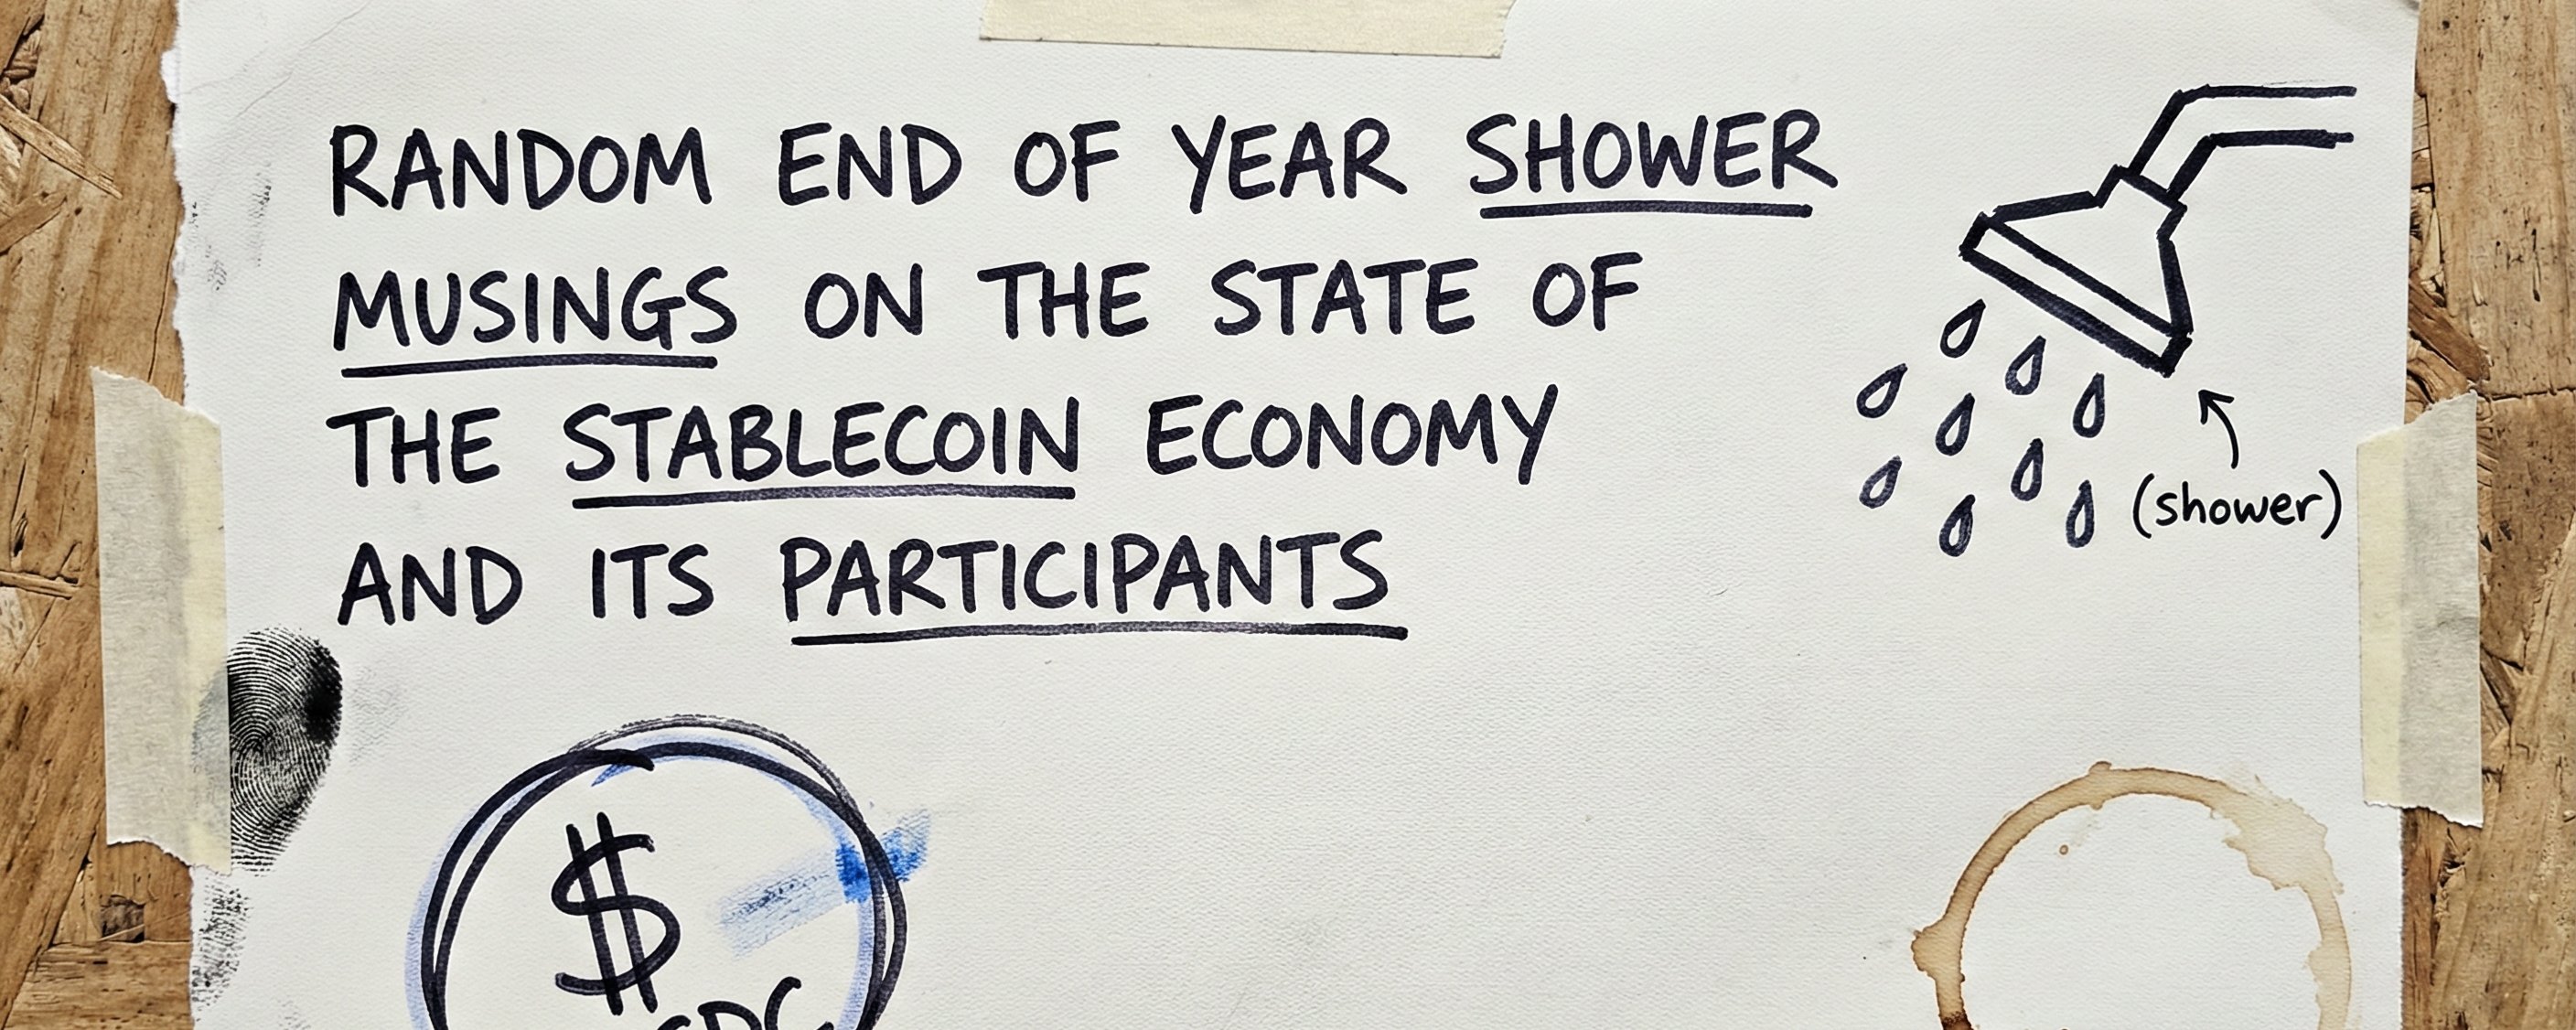 RANDOM END OF YEAR SHOWER
MUSINGS ON THE STATE OF
THE STABLECOIN ECONOMY
AND ITS PARTICIPANTS
(shower)
$